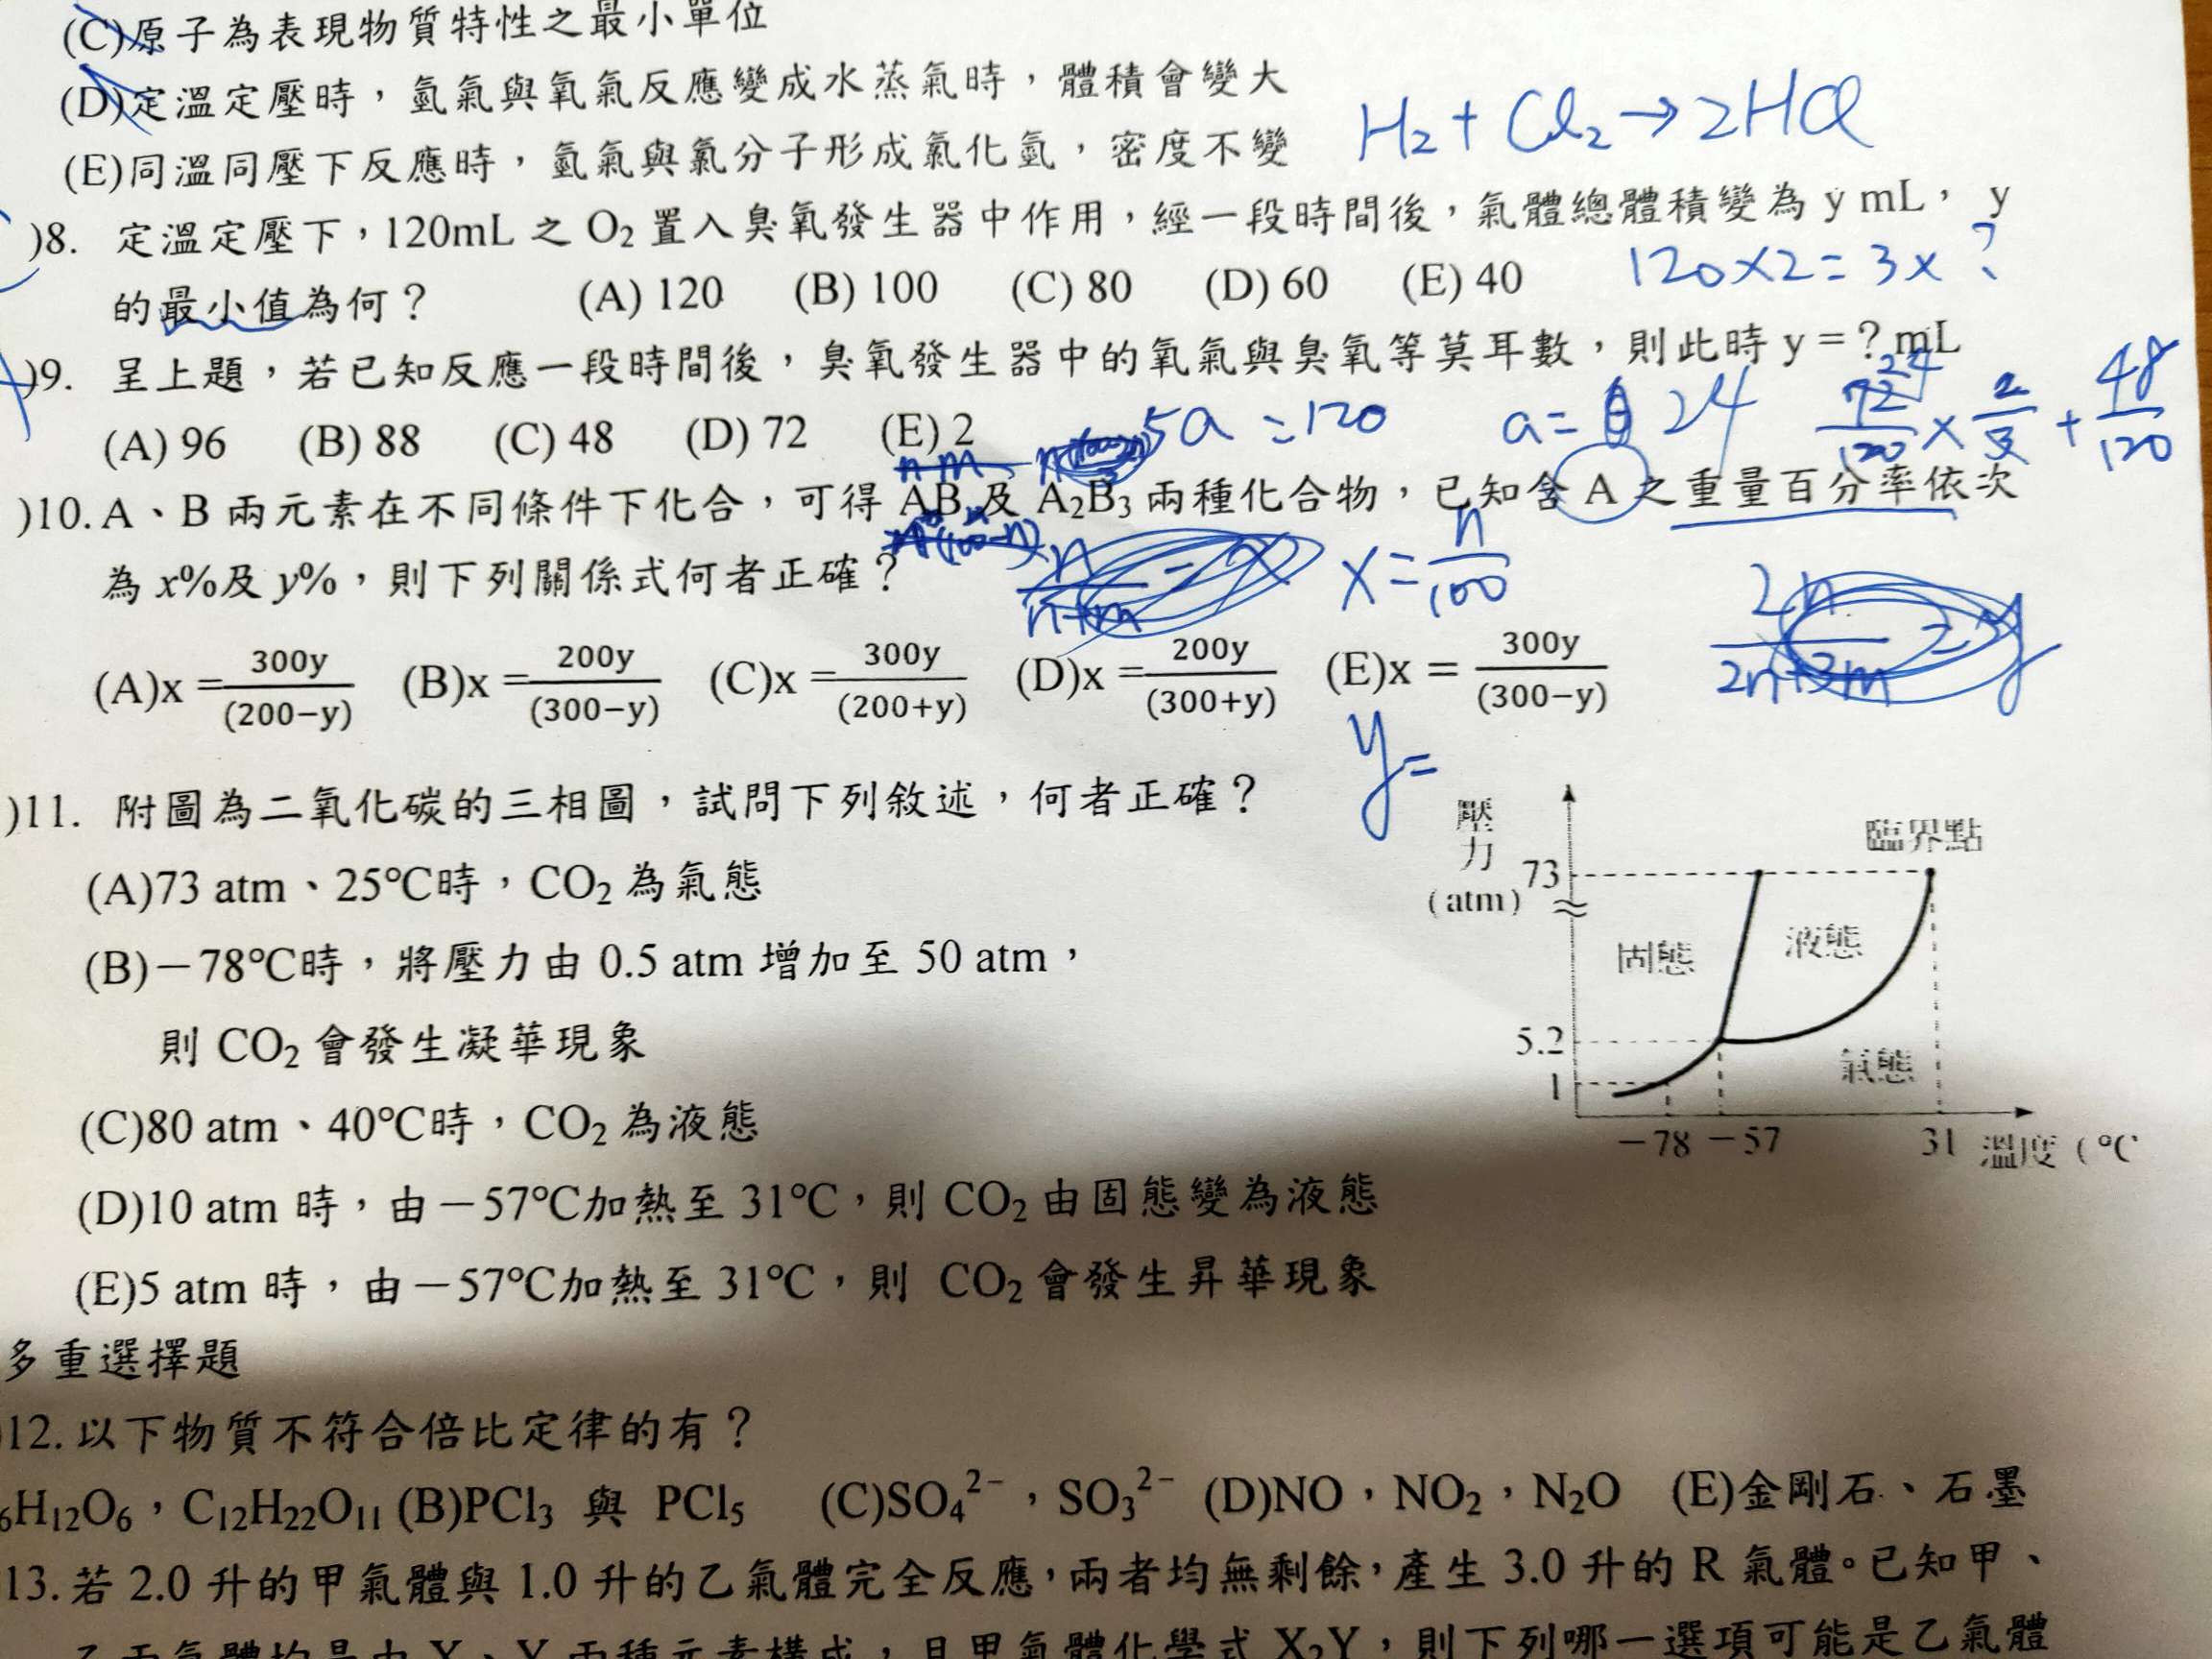 (C)原子為表現物質特性之最小單位
(D)定溫定壓時，氫氣與氧氣反應變成水蒸氣時，體積會變大
(E)同溫同壓下反應時，氫氣與氯分子形成氯化氫，密度不變
H₂ + Cl₂ → 2HCl
)8. 定溫定壓下，120mL 之 O₂ 置入臭氧發生器中作用，經一段時間後，氣體總體積變為 y mL， y
的最小值為何？ (A) 120 (B) 100 (C) 80 (D) 60 (E) 40
120×2=3x ?
)9. 呈上題，若已知反應一段時間後，臭氧發生器中的氧氣與臭氧等莫耳數，則此時 y =？mL
(A) 96 (B) 88 (C) 48 (D) 72 (E) 2
5a =120 a= 24 × 2/3 + 48/120
)10. A、B 兩元素在不同條件下化合，可得 AB 及 A₂B₃ 兩種化合物，已知含 A 之重量百分率依次
為 x%及 y%，則下列關係式何者正確？
x= n/100
(A)x = 300y/(200−y) (B)x = 200y/(300−y) (C)x = 300y/(200+y) (D)x = 200y/(300+y) (E)x = 300y/(300−y)
y=
)11. 附圖為二氧化碳的三相圖，試問下列敘述，何者正確？
(A)73 atm、25℃時，CO₂ 為氣態
(B)－78℃時，將壓力由 0.5 atm 增加至 50 atm，
則 CO₂ 會發生凝華現象
(C)80 atm、40℃時，CO₂ 為液態
(D)10 atm 時，由－57℃加熱至 31℃，則 CO₂ 由固態變為液態
(E)5 atm 時，由－57℃加熱至 31℃，則 CO₂ 會發生昇華現象
壓力
(atm)
73
臨界點
固態
液態
5.2
氣態
1
－78 －57 31 溫度（℃
多重選擇題
12. 以下物質不符合倍比定律的有？
₆H₁₂O₆，C₁₂H₂₂O₁₁ (B)PCl₃ 與 PCl₅ (C)SO₄²⁻，SO₃²⁻ (D)NO，NO₂，N₂O (E)金剛石、石墨
13. 若 2.0 升的甲氣體與 1.0 升的乙氣體完全反應，兩者均無剩餘，產生 3.0 升的 R 氣體。已知甲、
乙兩氣體均是由 X、Y 兩種元素構成，且甲氣體化學式 X₂Y，則下列哪一選項可能是乙氣體